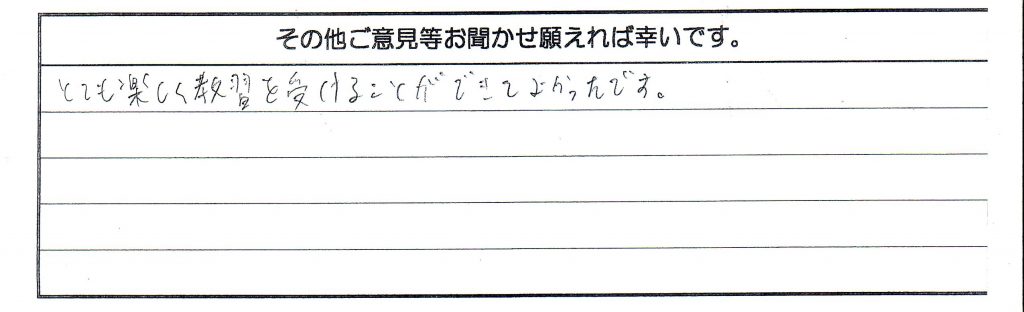 その他ご意見等お聞かせ願えれば幸いです。
とても楽しく教習を受けることができてよかったです。